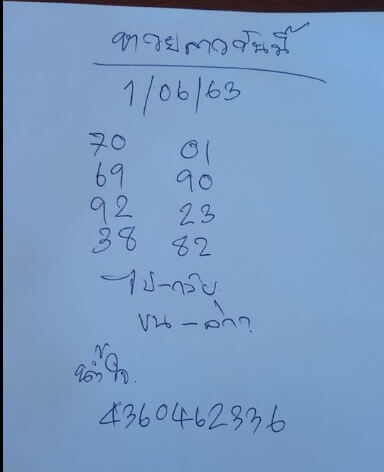 หวยลาววันนี้
1/06/63
70 01
69 90
92 23
38 82
ไป-กลับ
บน-ล่าง
น้ำใจ
4360462336